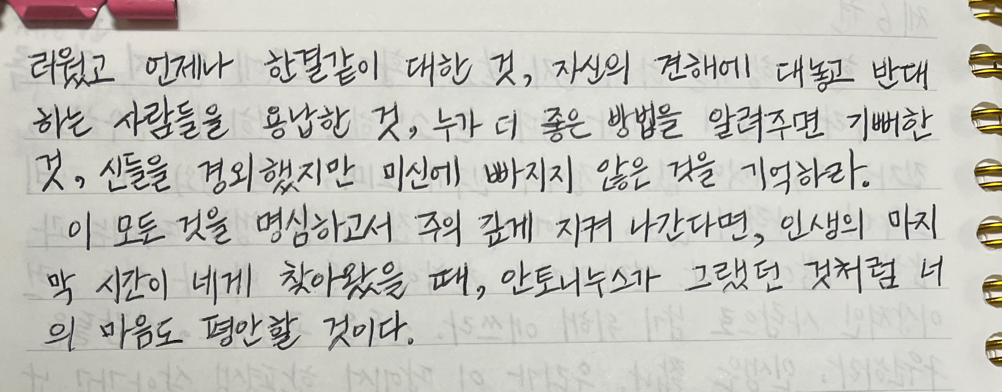 러웠고 언제나 한결같이 대한 것, 자신의 견해에 대놓고 반대
하는 사람들을 용납한 것, 누가 더 좋은 방법을 알려주면 기뻐한
것, 신들을 경외했지만 미신에 빠지지 않은 것을 기억하라.
이 모든 것을 명심하고서 주의 깊게 지켜 나간다면, 인생의 마지
막 시간이 네게 찾아왔을 때, 안토니누스가 그랬던 것처럼 너
의 마음도 평안할 것이다.